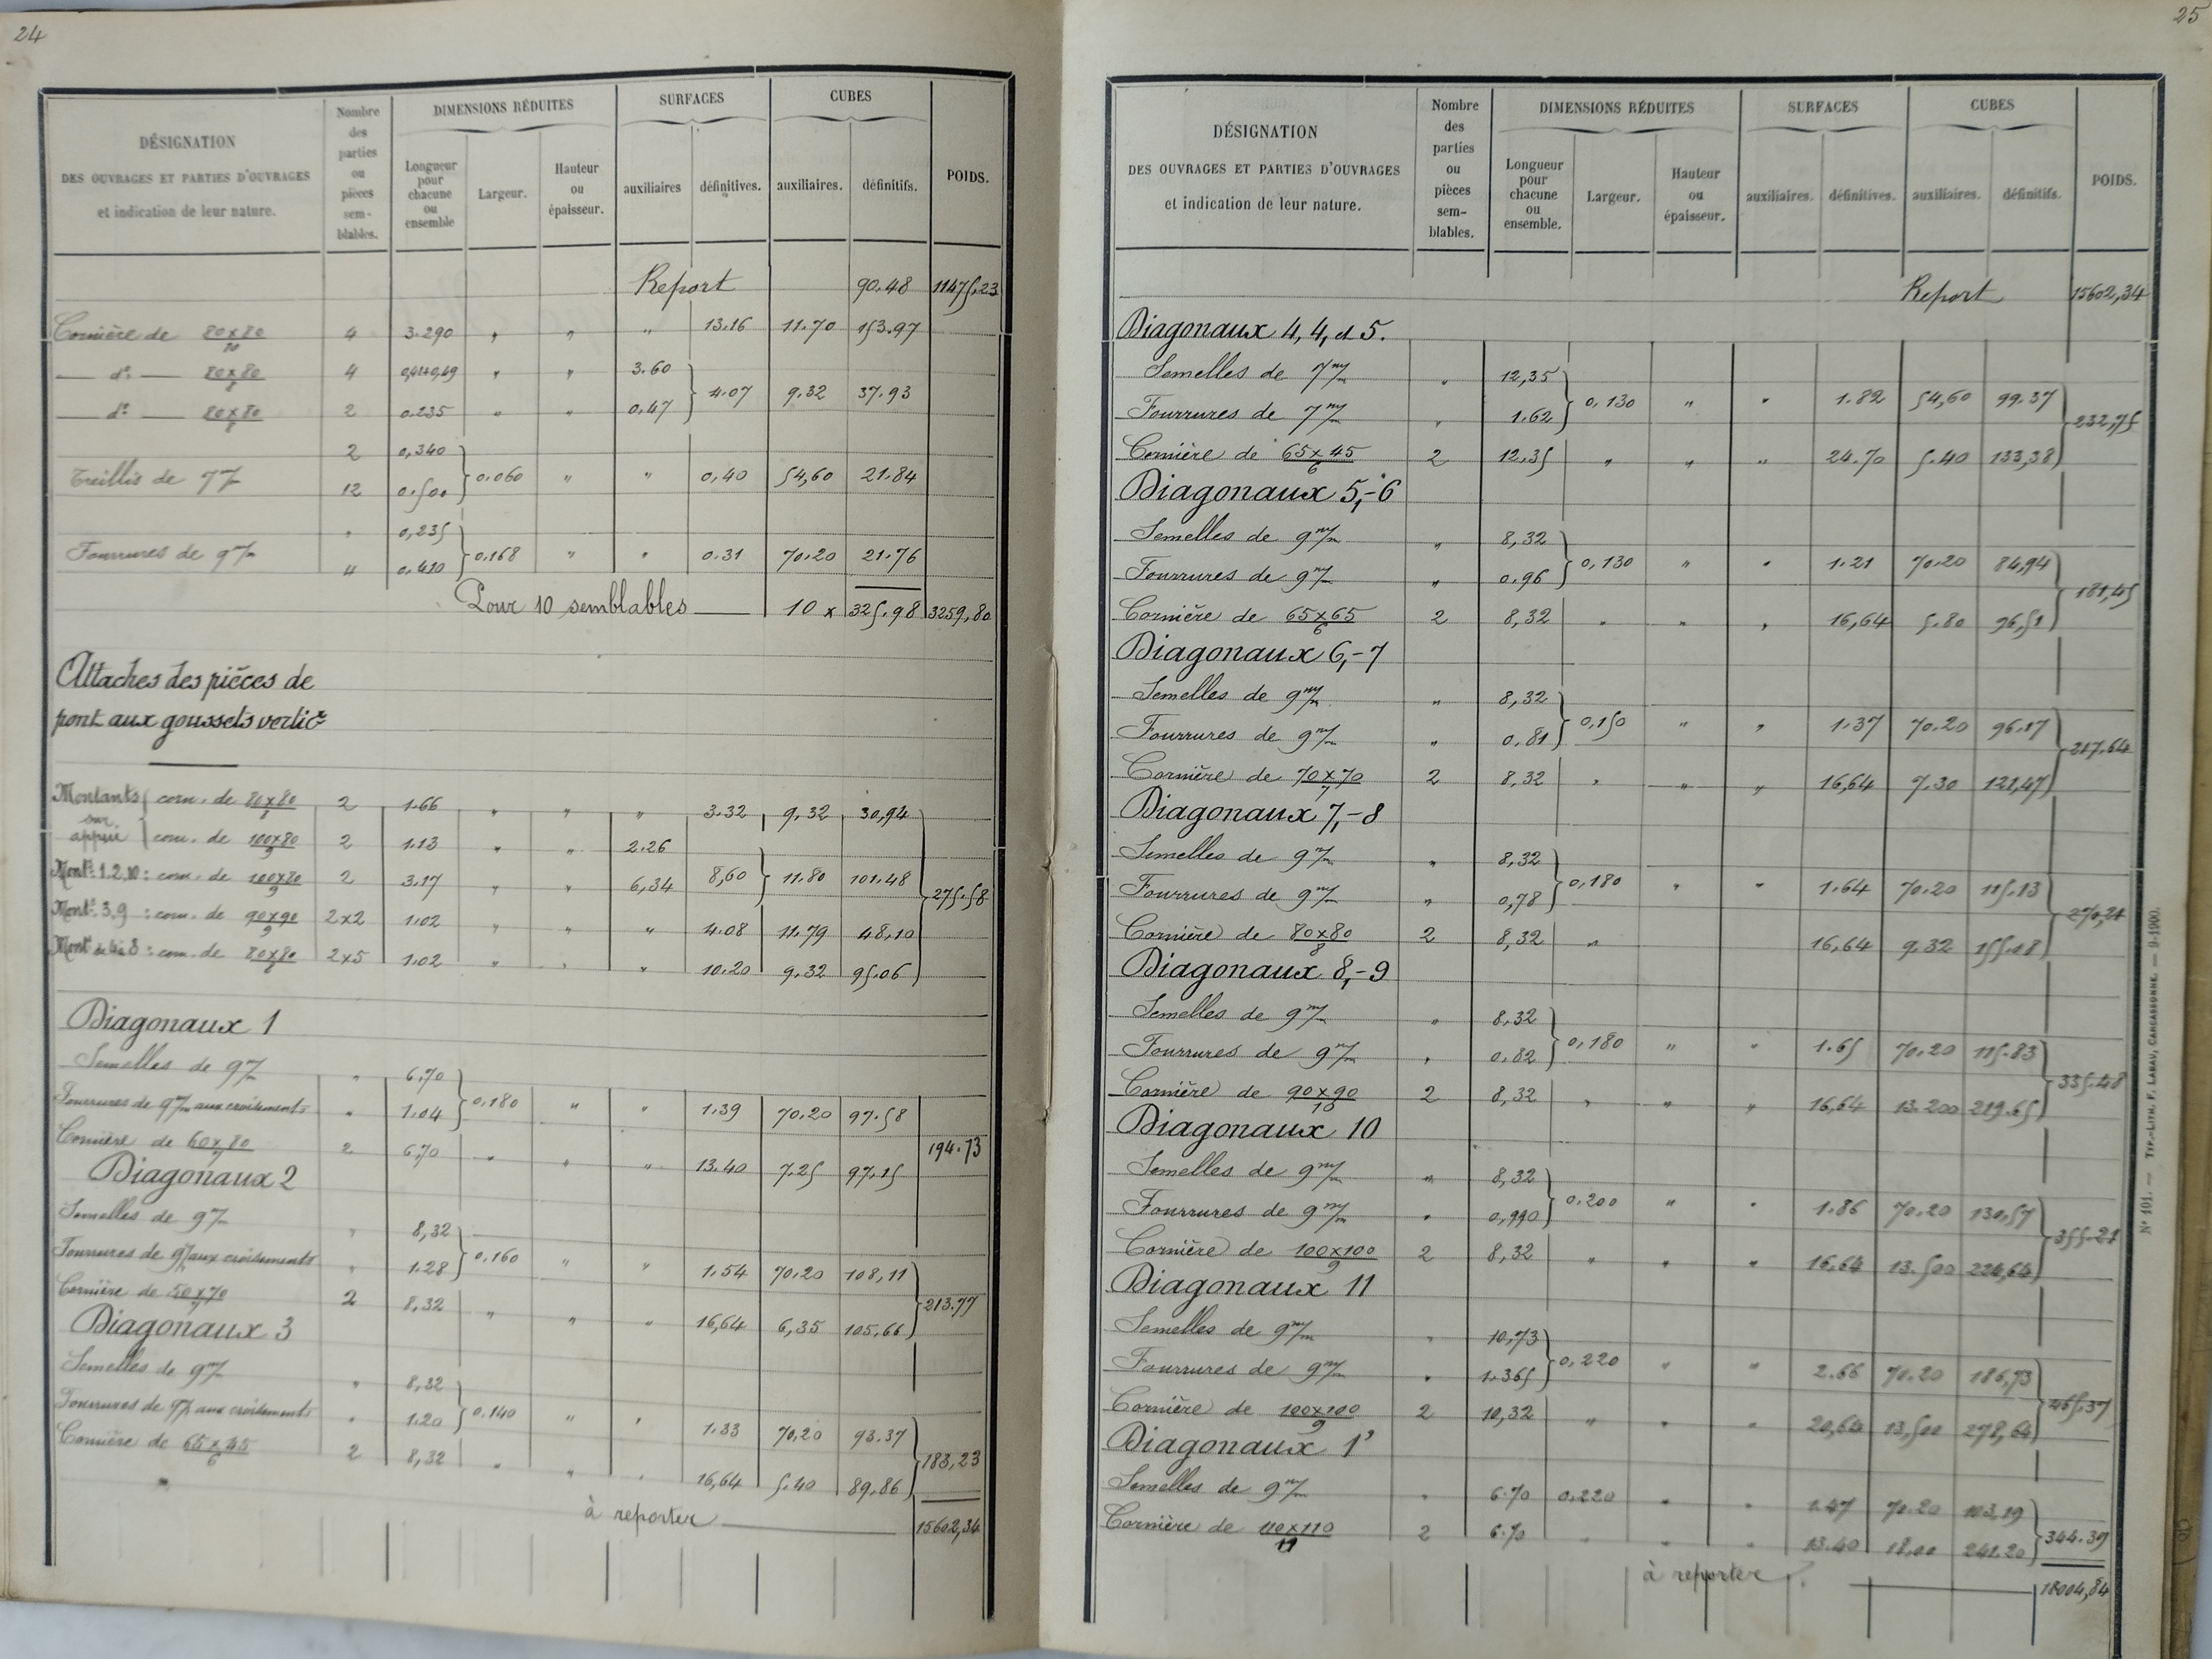 24
DÉSIGNATION
DES OUVRAGES ET PARTIES D'OUVRAGES
et indication de leur nature.
Nombre des parties ou pièces sem-blables.
DIMENSIONS RÉDUITES
Longueur pour chacune ou ensemble
Largeur.
Hauteur ou épaisseur.
SURFACES
auxiliaires
définitives.
CUBES
auxiliaires.
définitifs.
POIDS.
Report 90.48 11475,23
Cornière de 80x80/10 4 3.290 " " " 13.16 11.70 153.97
— d° — 80x80/8 4 0,41+0,49 " " 3.60
4.07 9.32 37.93
— d° — 80x80/8 2 0.235 " " 0.47
2 0,340
Treillis de 7 m/m 0.060 " " 0,40 54,60 21.84
12 0.500
" 0,235
Fourrures de 9 m/m 0.168 " " 0.31 70.20 21.76
" 0.410
Pour 10 semblables — 10 x 325.98 3259,80
Attaches des pièces de
pont aux goussets vertic˟
Montants sur appui corn. de 80x80/8 2 1.66 " " " 3.32 9,32 30,94
corn. de 100x80/9 2 1.13 " " 2.26
8,60 11.80 101.48
Mont.ts 1.2.10 : corn. de 100x80/9 2 3.17 " " 6,34
275.58
Mont.ts 3.9 : corn. de 90x90/9 2x2 1.02 " " " 4.08 11.79 48,10
Mont.ts de 4 à 8 : corn. de 80x80/8 2x5 1.02 " " " 10.20 9.32 95.06
Diagonaux 1
Semelles de 9 m/m " 6.70
0.180 " " 1.39 70.20 97.58
Fourrures de 9 m/m aux croisements " 1.04
194.73
Cornière de 60x80 2 6.70 " " " 13.40 7.25 97.15
Diagonaux 2
Semelles de 9 m/m " 8,32
0.160 " " 1.54 70.20 108,11
Fourrures de 9 m/m aux croisements " 1.28
213.77
Cornière de 50x70 2 8,32 " " " 16,64 6,35 105.66
Diagonaux 3
Semelles de 9 m/m " 8,32
0.140 " " 1.33 70,20 93.37
Fourrures de 9 m/m aux croisements " 1.20
183,23
Cornière de 65x45/6 2 8,32 " " " 16,64 5.40 89.86
à reporter — 15602,34
25
DÉSIGNATION
DES OUVRAGES ET PARTIES D'OUVRAGES
et indication de leur nature.
Nombre des parties ou pièces sem-blables.
DIMENSIONS RÉDUITES
Longueur pour chacune ou ensemble.
Largeur.
Hauteur ou épaisseur.
SURFACES
auxiliaires.
définitives.
CUBES
auxiliaires.
définitifs.
POIDS.
Report 15602,34
Diagonaux 4, 4, et 5.
Semelles de 7 m/m " 12,35
0,130 " " 1.82 54,60 99.37
Fourrures de 7 m/m " 1.62
232,75
Cornière de 65x45/6 2 12,35 " " " 24.70 5.40 133,38
Diagonaux 5,-6
Semelles de 9 m/m " 8,32
0,130 " " 1.21 70.20 84,94
Fourrures de 9 m/m " 0.96
181,45
Cornière de 65x65/6 2 8,32 " " " 16,64 5.80 96,51
Diagonaux 6,-7
Semelles de 9 m/m " 8,32
0,150 " " 1.37 70.20 96.17
Fourrures de 9 m/m " 0.81
217.64
Cornière de 70x70/7 2 8,32 " " " 16,64 7.30 121,47
Diagonaux 7,-8
Semelles de 9 m/m " 8,32
0,180 " " 1.64 70.20 115.13
Fourrures de 9 m/m " 0,78
270,21
Cornière de 80x80/8 2 8,32 " 16,64 9.32 155.08
Diagonaux 8,-9
Semelles de 9 m/m " 8,32
0,180 " " 1.65 70.20 115.83
Fourrures de 9 m/m " 0.82
335.48
Cornière de 90x90/10 2 8,32 " " " 16,64 13.200 219.65
Diagonaux 10
Semelles de 9 m/m " 8,32
0.200 " " 1.86 70.20 130,57
Fourrures de 9 m/m " 0,990
355.21
Cornière de 100x100/9 2 8,32 " " " 16.64 13.500 224,64
Diagonaux 11
Semelles de 9 m/m " 10,73
0,220 " " 2.66 70.20 186,73
Fourrures de 9 m/m " 1.365
465.37
Cornière de 100x100/9 2 10,32 " " " 20,64 13,500 278,64
Diagonaux 1'
Semelles de 9 m/m " 6.70 0,220 " " 1.47 70.20 103,19
344.39
Cornière de 110x110/11 2 6.70 " " " 13.40 18,00 241.20
à reporter — 18004,84
N° 101. — TYP.-LITH. F. LABAU, CARCASSONNE. — 9-1900.